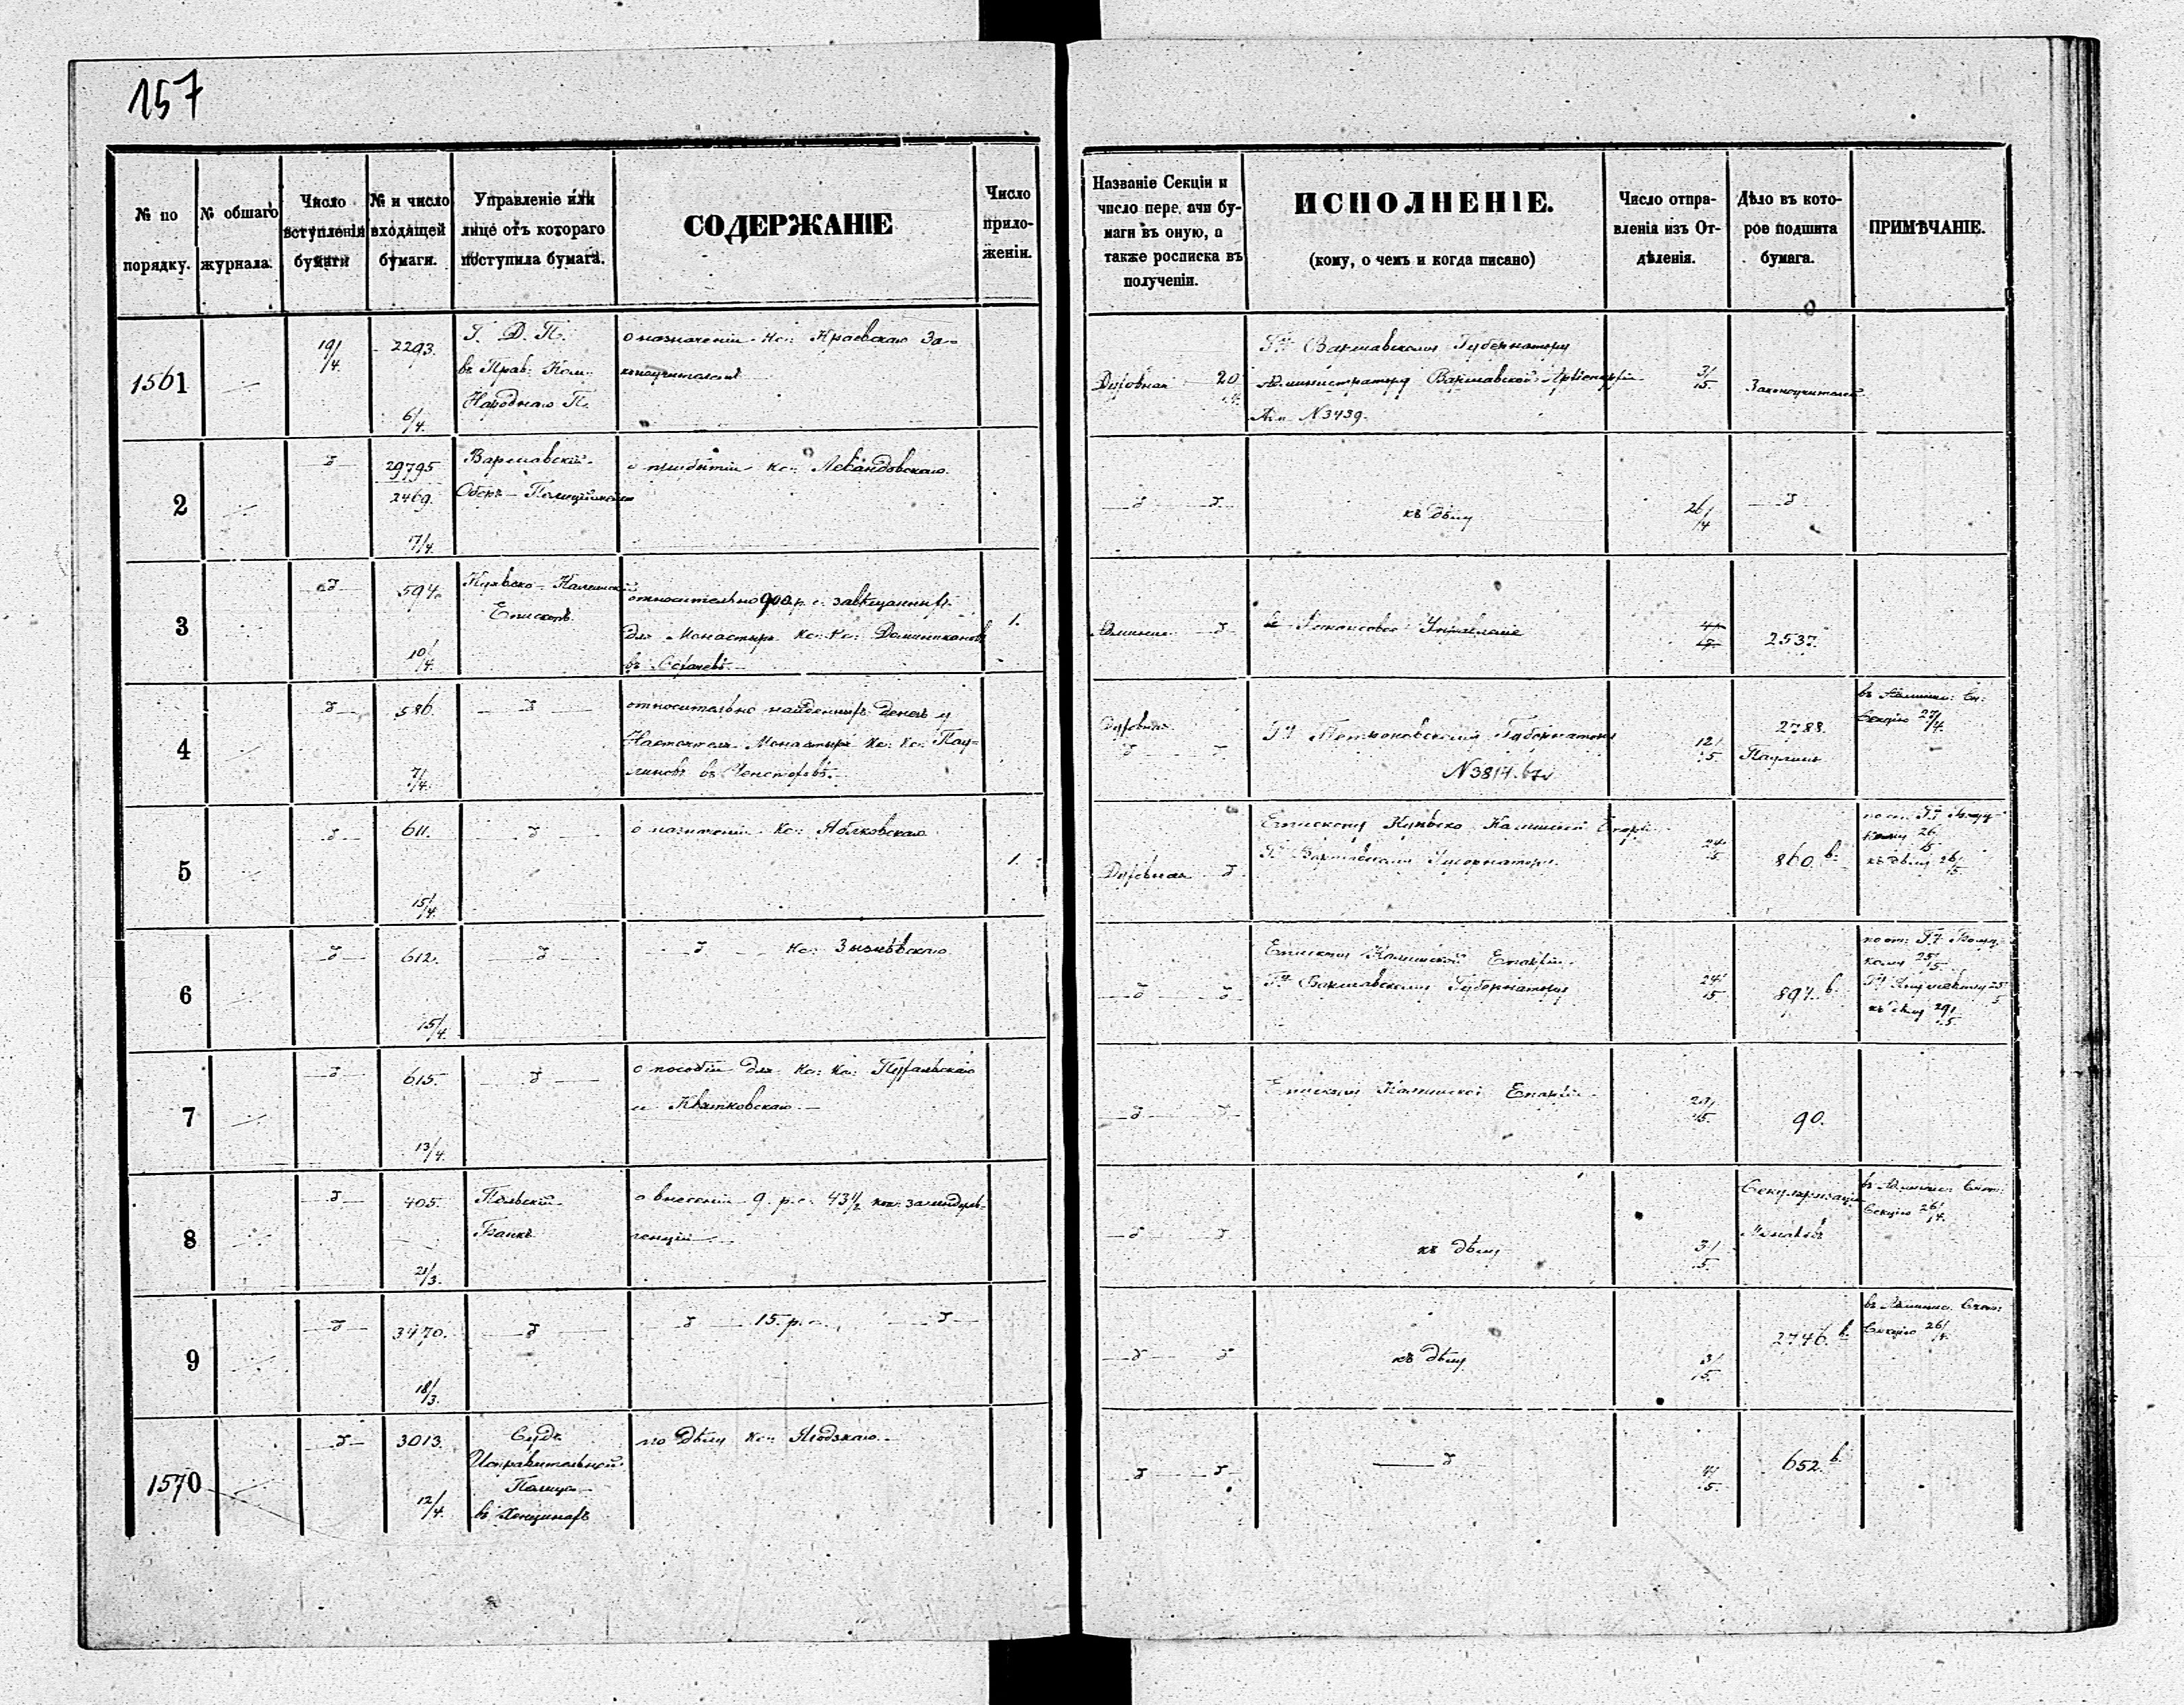 157
№ по порядку.
№ общаго журнала.
Число вступленія бумаги
№ и число входящей бумаги.
Управленіе или лице отъ котораго поступила бумага.
СОДЕРЖАНІЕ
Число приложеніи.
Названіе Секціи и число пере ачи бумаги въ оную, а также росписка въ полученіи.
ИСПОЛНЕНІЕ.
(кому, о чемъ и когда писано)
Число отправленія изъ Отдѣленія.
Дѣло въ которое подшита бумага.
ПРИМѢЧАНІЕ.
1561
19/4
2293.
6/4.
Г. Д. П.
въ Прав: Ком:
Народнаго П.
о назначеніи Кс: Краевскаго За-
коноучителемъ
Духовная 20
Гну Варшавскому Губернатору
Администратору Варшавской Архіепархіи
№ 3439.
3/5
Законоучителей
2
29795
2469.
7/4.
Варшавскій
Оберъ-Полицмейстеръ
о прибытіи Кс: Левандовскаго.
къ дѣлу
26/4
3
594.
10/4.
Куявско-Калишскій
Епископъ
относительно 900 р. с. завѣщанныхъ
для Монастыря Кс: Кс: Доминикановъ
1.
Управленіе
2537.
4
586.
7/4.
относительно найденныхъ денегъ у
Настоятеля Монастыря Кс: Кс: Пау-
линовъ въ Ченстоховѣ.
Духовная
Гну Петроковскому Губернатору
N 3814.
12/5
2788.
Паулины
Секцію 27/4.
5
611.
15/4.
о назначеніи Кс: Яблковскаго
1.
Духовная
Епископу Куявско Калишской Епархіи
Гну Варшавскому Губернатору
24/5
860 в.
къ дѣлу 26/5
6
612.
15/4.
Кс:
Епископу Калишской Епархіи
Гну Варшавскому Губернатору
24/5
897 в.
къ дѣлу 29/5.
7
615.
13/4.
о пособіи для Кс: Кс: Пухальскаго
и Квятковскаго
Епископу Калишской Епархіи
90.
8
405.
21/3.
Польскій
Банкъ
о внесеніи 9 р. с. 43½ коп.
къ дѣлу
3/5.
Секуляризація
Монаховъ
Секцію 26/4.
9
3470.
18/3.
15 р. с.
къ дѣлу
3/5.
2746 в.
Секцію 26/4.
1570
3013.
12/4.
Судъ
Исправительной
Полиціи
въ Хенцинахъ
по дѣлу Кс:
4/5.
652 в.